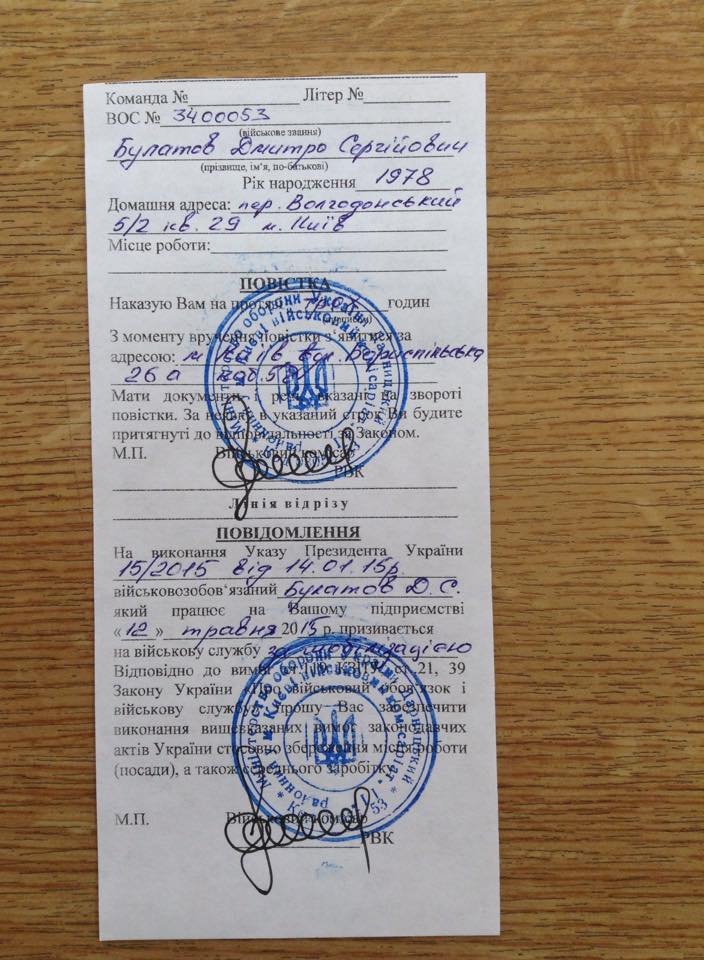 Команда №____________ Літер №__________
ВОС № 3400053
(військове звання)
Булатов Дмитро Сергійович
(прізвище, ім'я, по-батькові)
Рік народження 1978
Домашня адреса: пер. Волгодонський
5/2 кв. 29 м. Київ
Місце роботи:
ПОВІСТКА
Наказую Вам на протязі трьох годин
З моменту вручення повістки з'явитися за
адресою: м. Київ вул. Бориспільська
26 а каб.
Мати документи і речі вказані на звороті
повістки. За неявку в указаний строк Ви будите
притягнуті до відповідальності за Законом.
М.П. Військовий комісар
РВК
Лінія відрізу
ПОВІДОМЛЕННЯ
На виконання Указу Президента України
15/2015 від 14.01.15р.
військовозобов'язаний Булатов Д.С.
який працює на Вашому підприємстві
«12» травня 2015 р. призивається
на військову службу за мобілізацією
Відповідно до вимог ст. 119 КЗПП, ст. 21, 39
Закону України «Про військовий обов'язок і
військову службу» прошу Вас забезпечити
виконання вищевказаних вимог законодавчих
актів України стосовно збереження місця роботи
(посади), а також середнього заробітку.
М.П. Військовий комісар
РВК